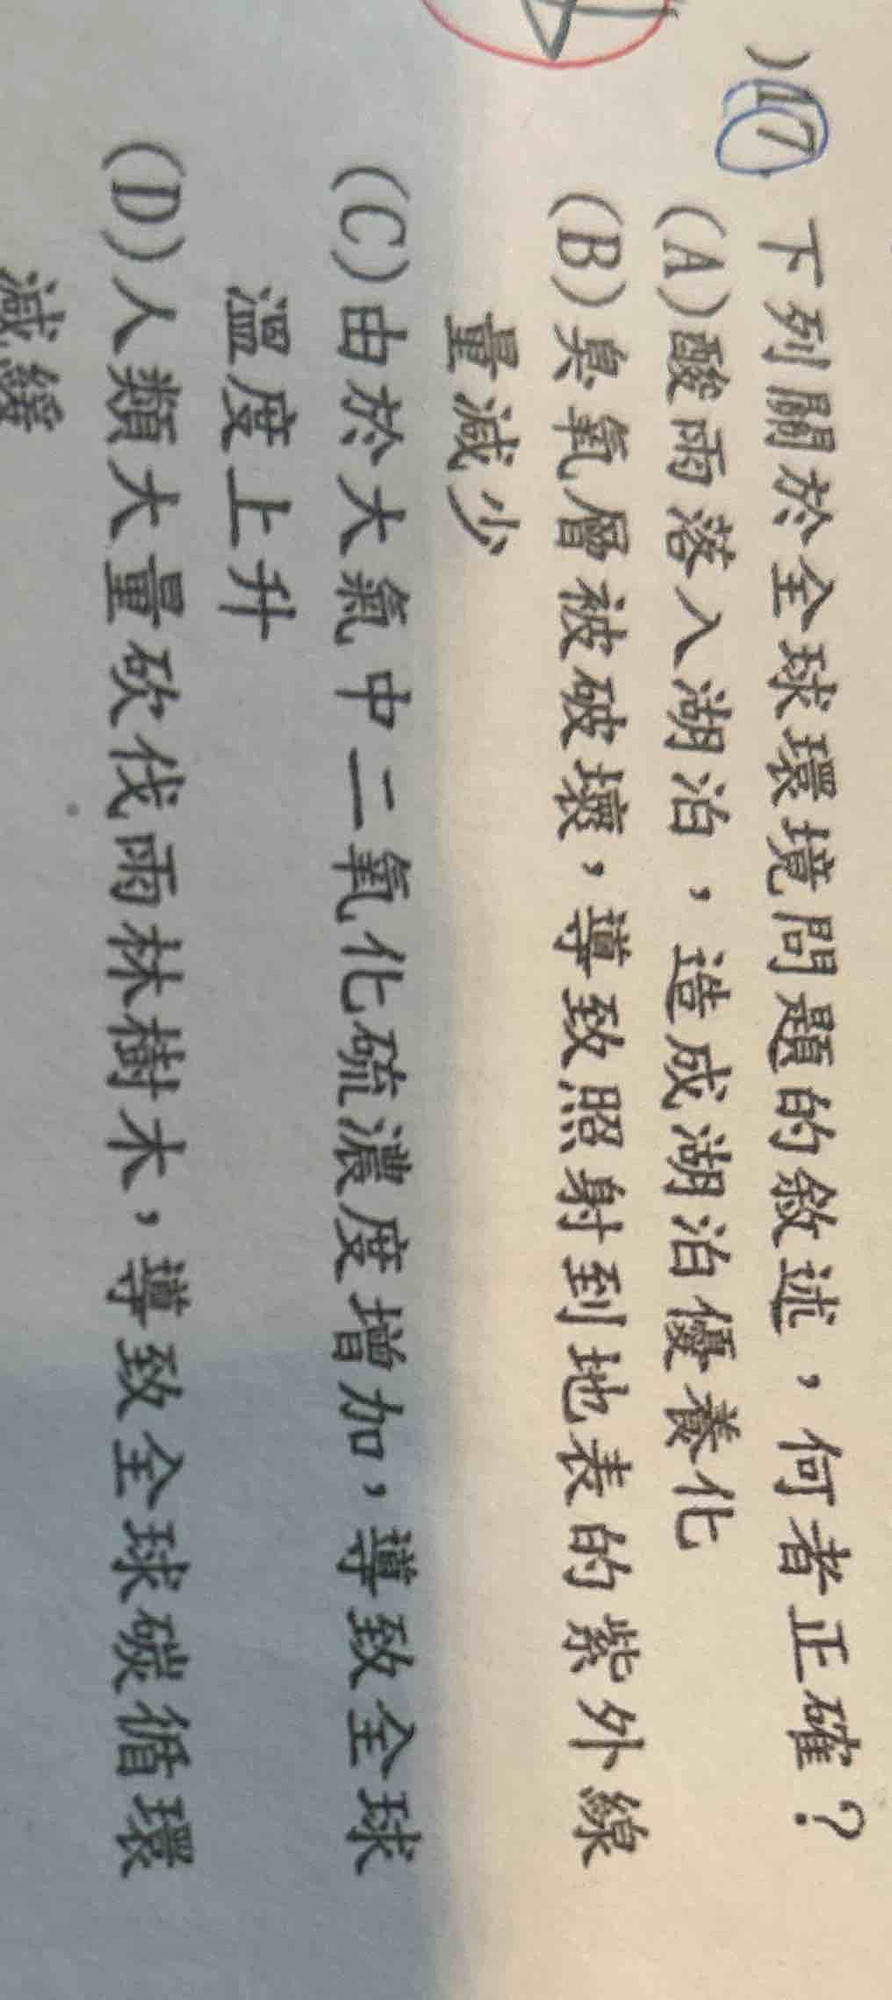 )17. 下列關於全球環境問題的敘述，何者正確？
(A)酸雨落入湖泊，造成湖泊優養化
(B)臭氧層被破壞，導致照射到地表的紫外線
量減少
(C)由於大氣中二氧化硫濃度增加，導致全球
溫度上升
(D)人類大量砍伐雨林樹木，導致全球碳循環
減緩